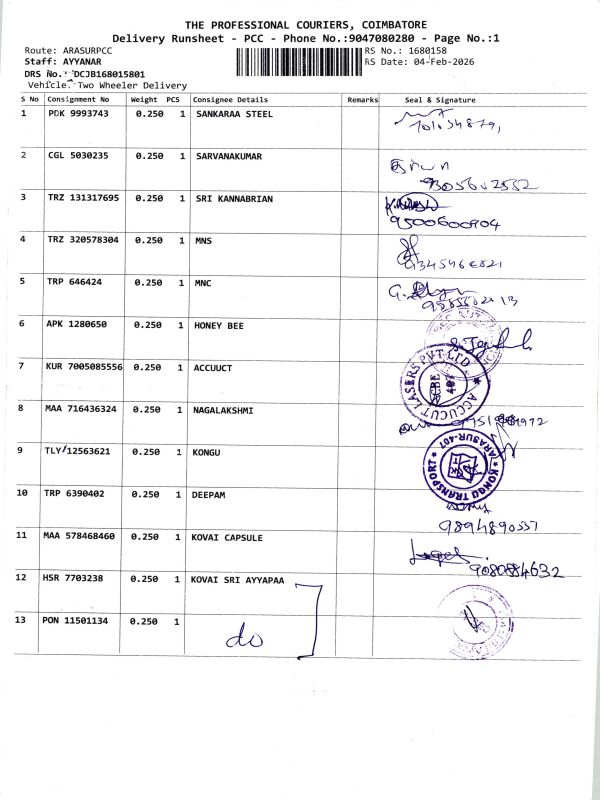 THE PROFESSIONAL COURIERS, COIMBATORE
Delivery Runsheet - PCC - Phone No.:9047080280 - Page No.:1
Route: ARASURPCC RS No.: 1680158
Staff: AYYANAR RS Date: 04-Feb-2026
DRS No.: DCJB168015801
Vehicle: Two Wheeler Delivery
S No Consignment No Weight PCS Consignee Details Remarks Seal & Signature
1 PDK 9993743 0.250 1 SANKARAA STEEL
2 CGL 5030235 0.250 1 SARVANAKUMAR
3 TRZ 131317695 0.250 1 SRI KANNABRIAN
9500600904
4 TRZ 320578304 0.250 1 MNS
5 TRP 646424 0.250 1 MNC
6 APK 1280650 0.250 1 HONEY BEE
7 KUR 7005085556 0.250 1 ACCUUCT
ACCUCUT LASERS PVT LTD
CBE
407
8 MAA 716436324 0.250 1 NAGALAKSHMI
9 TLY 12563621 0.250 1 KONGU
KONGU TRANSPORT
ARASUR-407
10 TRP 6390402 0.250 1 DEEPAM
9894890537
11 MAA 578468460 0.250 1 KOVAI CAPSULE
9080884632
12 HSR 7703238 0.250 1 KOVAI SRI AYYAPAA
13 PON 11501134 0.250 1
do